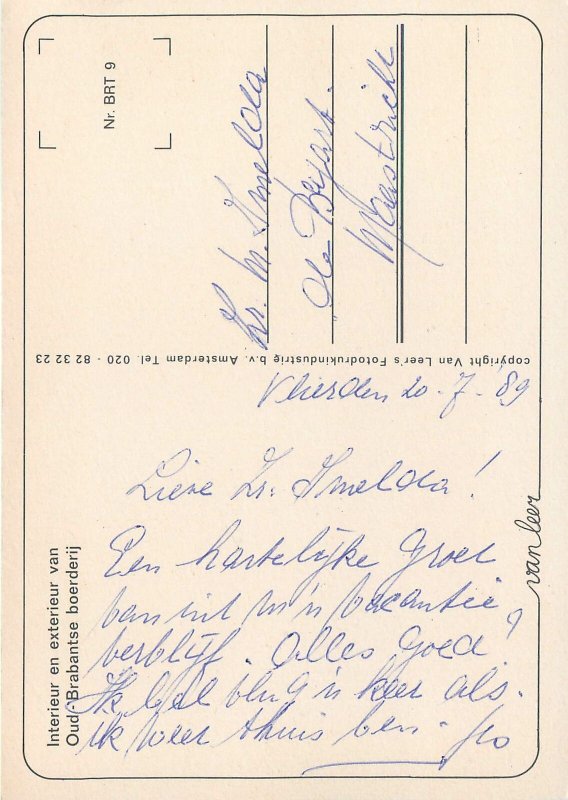 Nr. BRT 9
Zr. M. Imelda
de Beyart.
Maastricht
copyright Van Leer's Fotodrukindustrie b.v. Amsterdam Tel. 020 - 82 32 23
Vlierden 20-7-89
Lieve Zr. Imelda!
Een hartelijke groet
vanuit m'n vacantie
verblijf. Alles goed?
Ik bel nog 'n keer als
ik weer thuis ben - Jo
van leer
Interieur en exterieur van
Oud-Brabantse boerderij